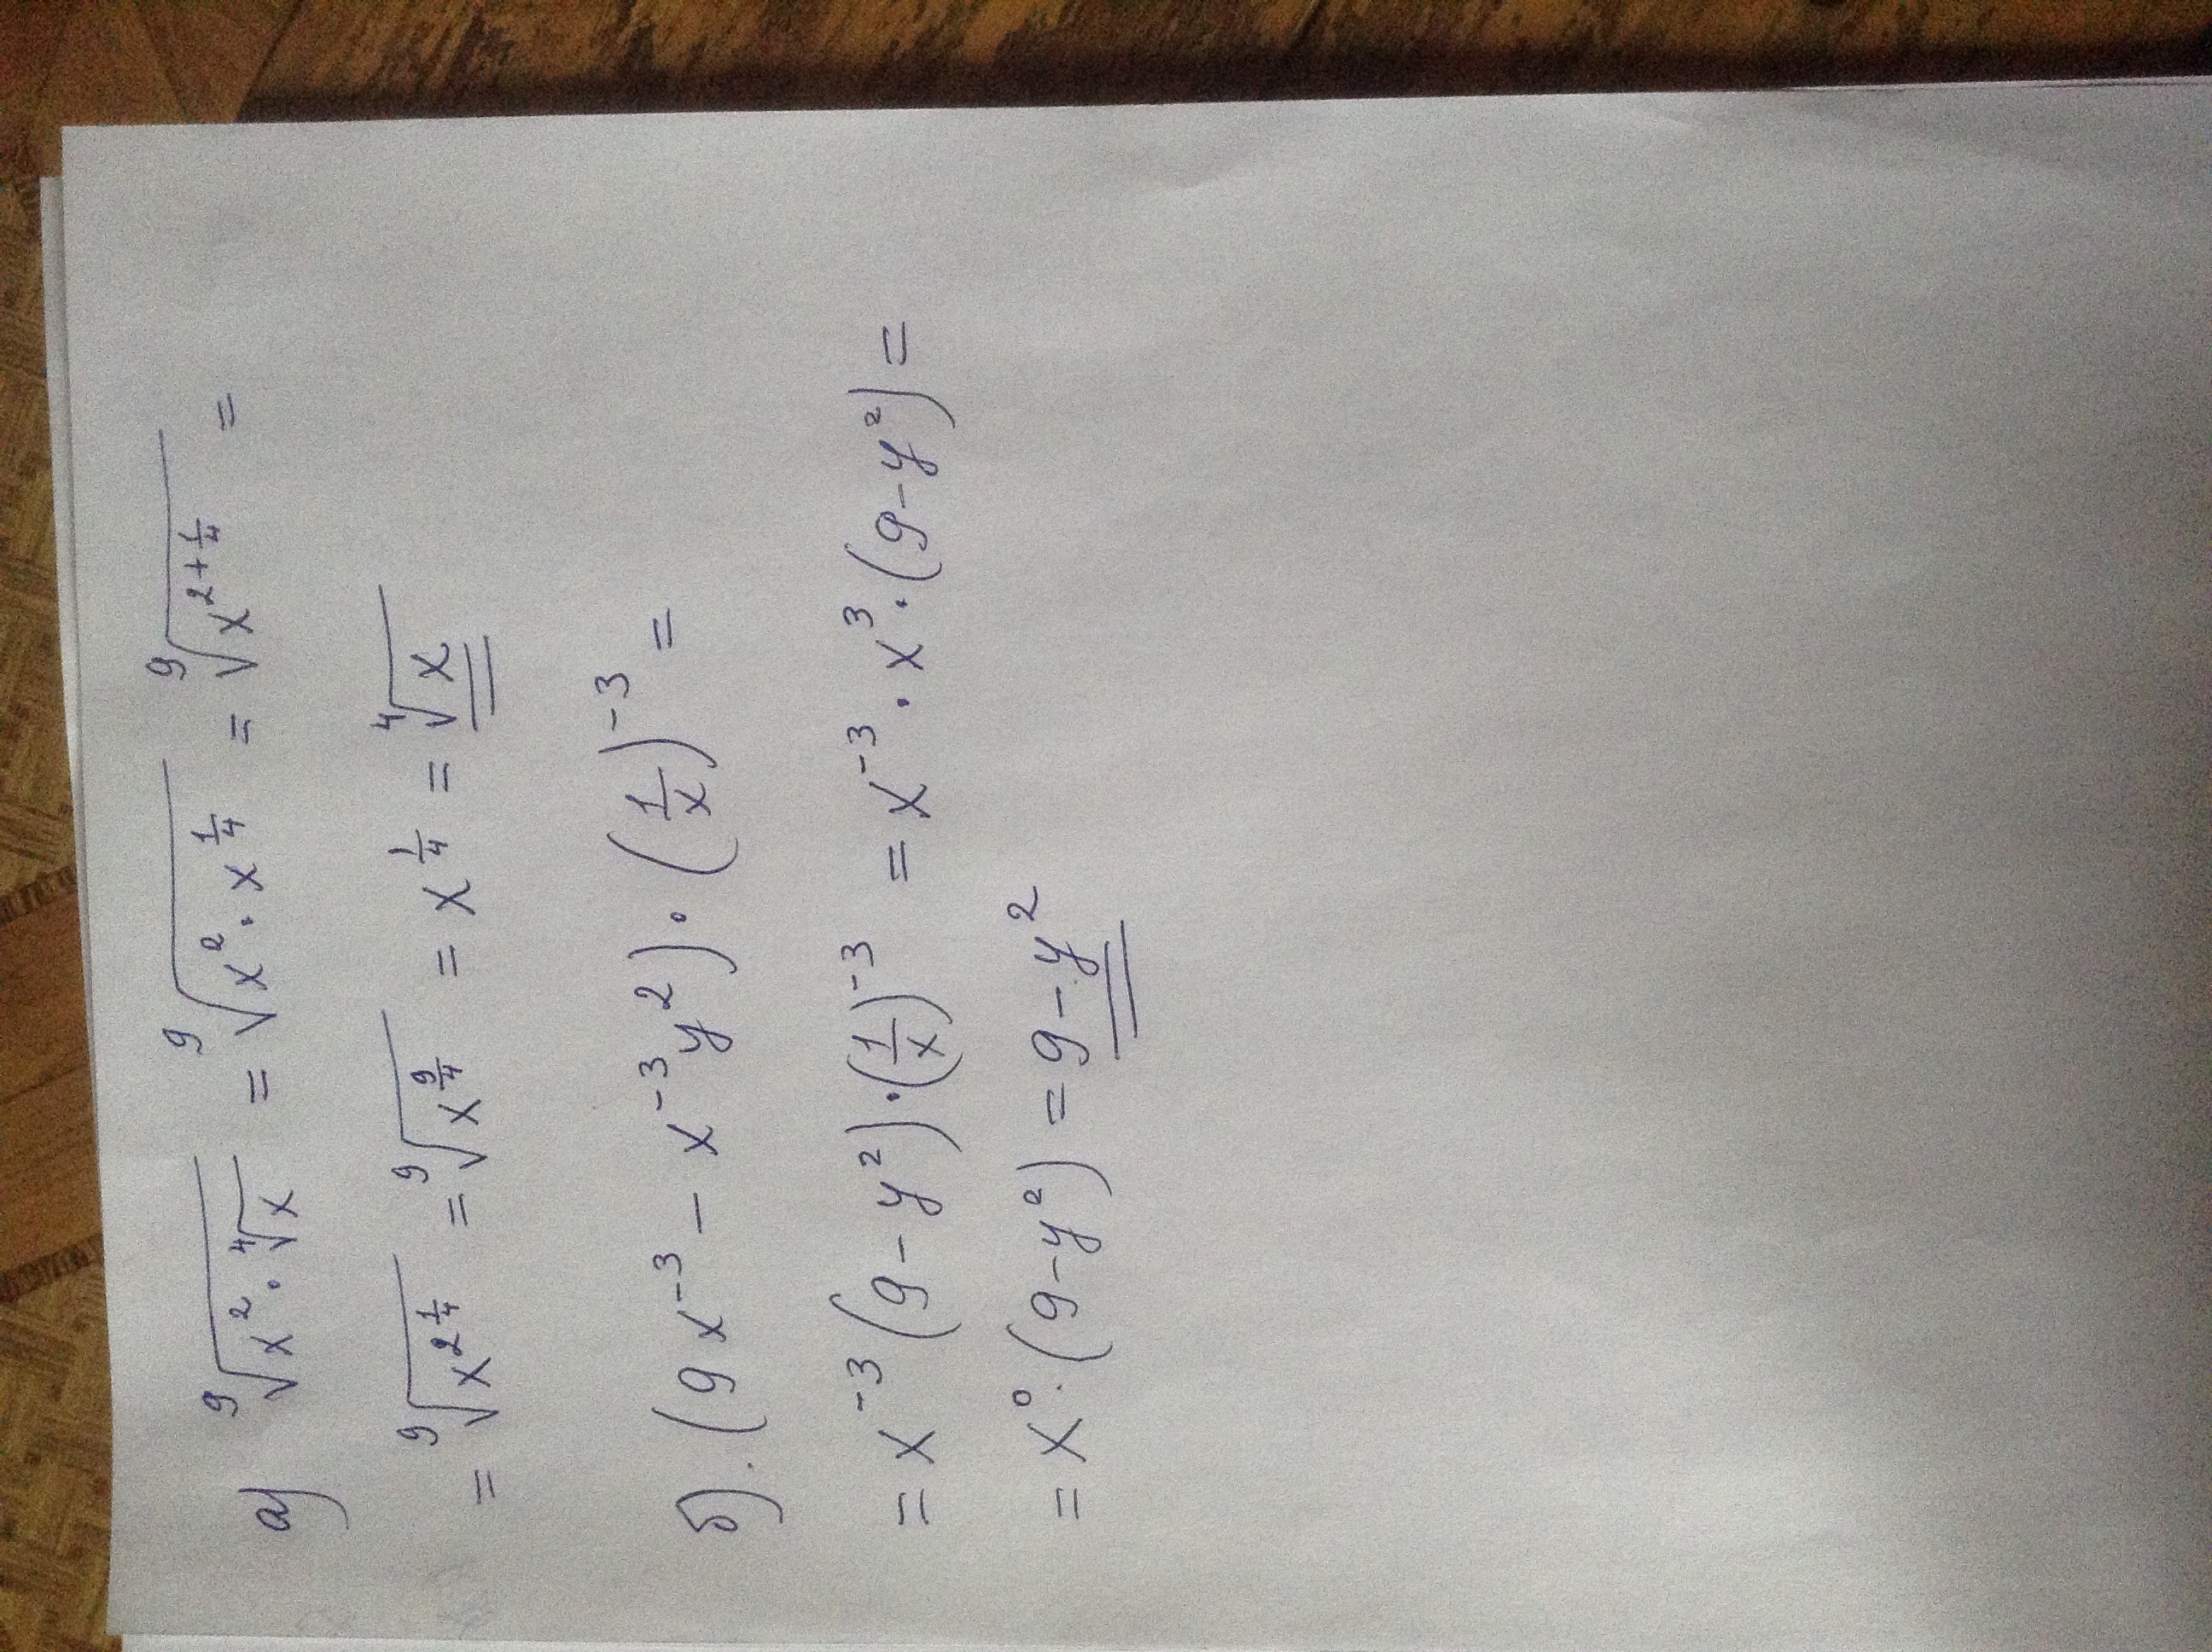 а) ⁹√(x² · ⁴√x) = ⁹√(x² · x^(1/4)) = ⁹√(x^(2+1/4)) =
= ⁹√(x^(2 1/4)) = ⁹√(x^(9/4)) = x^(1/4) = ⁴√x
б). (9x⁻³ − x⁻³y²) · (1/x)⁻³ =
= x⁻³(9 − y²) · (1/x)⁻³ = x⁻³ · x³ · (9 − y²) =
= x⁰ · (9 − y²) = 9 − y²